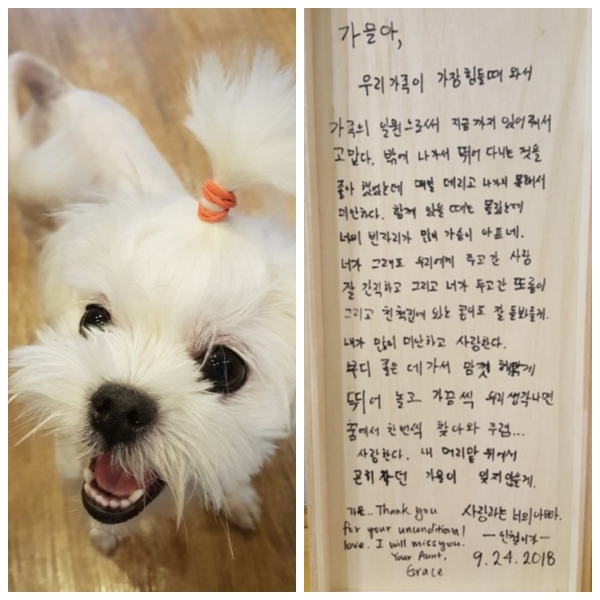 가을아,
우리가족이 가장 힘들때 와서
가족의 일원으로써 지금까지 있어줘서
고맙다. 밖에 나가서 뛰어 다니는 것을
좋아 했었는데 매일 데리고 나가지 못해서
미안하다. 함께 있을 때는 몰랐는데
너의 빈자리가 많이 가슴이 아프네.
너가 그래도 우리에게 주고간 사랑
잘 간직하고 그리고 너가 두고간 또롱이
그리고 친척집에 있는 콩이도 잘 돌봐줄게.
내가 많이 미안하고 사랑한다.
부디 좋은 데 가서 맘껏 해맑게
뛰어 놀고 가끔씩 우리생각나면
꿈에서 한번씩 찾아와 주렴...
사랑한다. 내 머리맡 위에서
곤히 자던 가을이 잊지않을게.
사랑하는 너의 아빠.
9.24.2018
가을.. Thank you
for your unconditional
love. I will miss you.
Your Aunt,
Grace